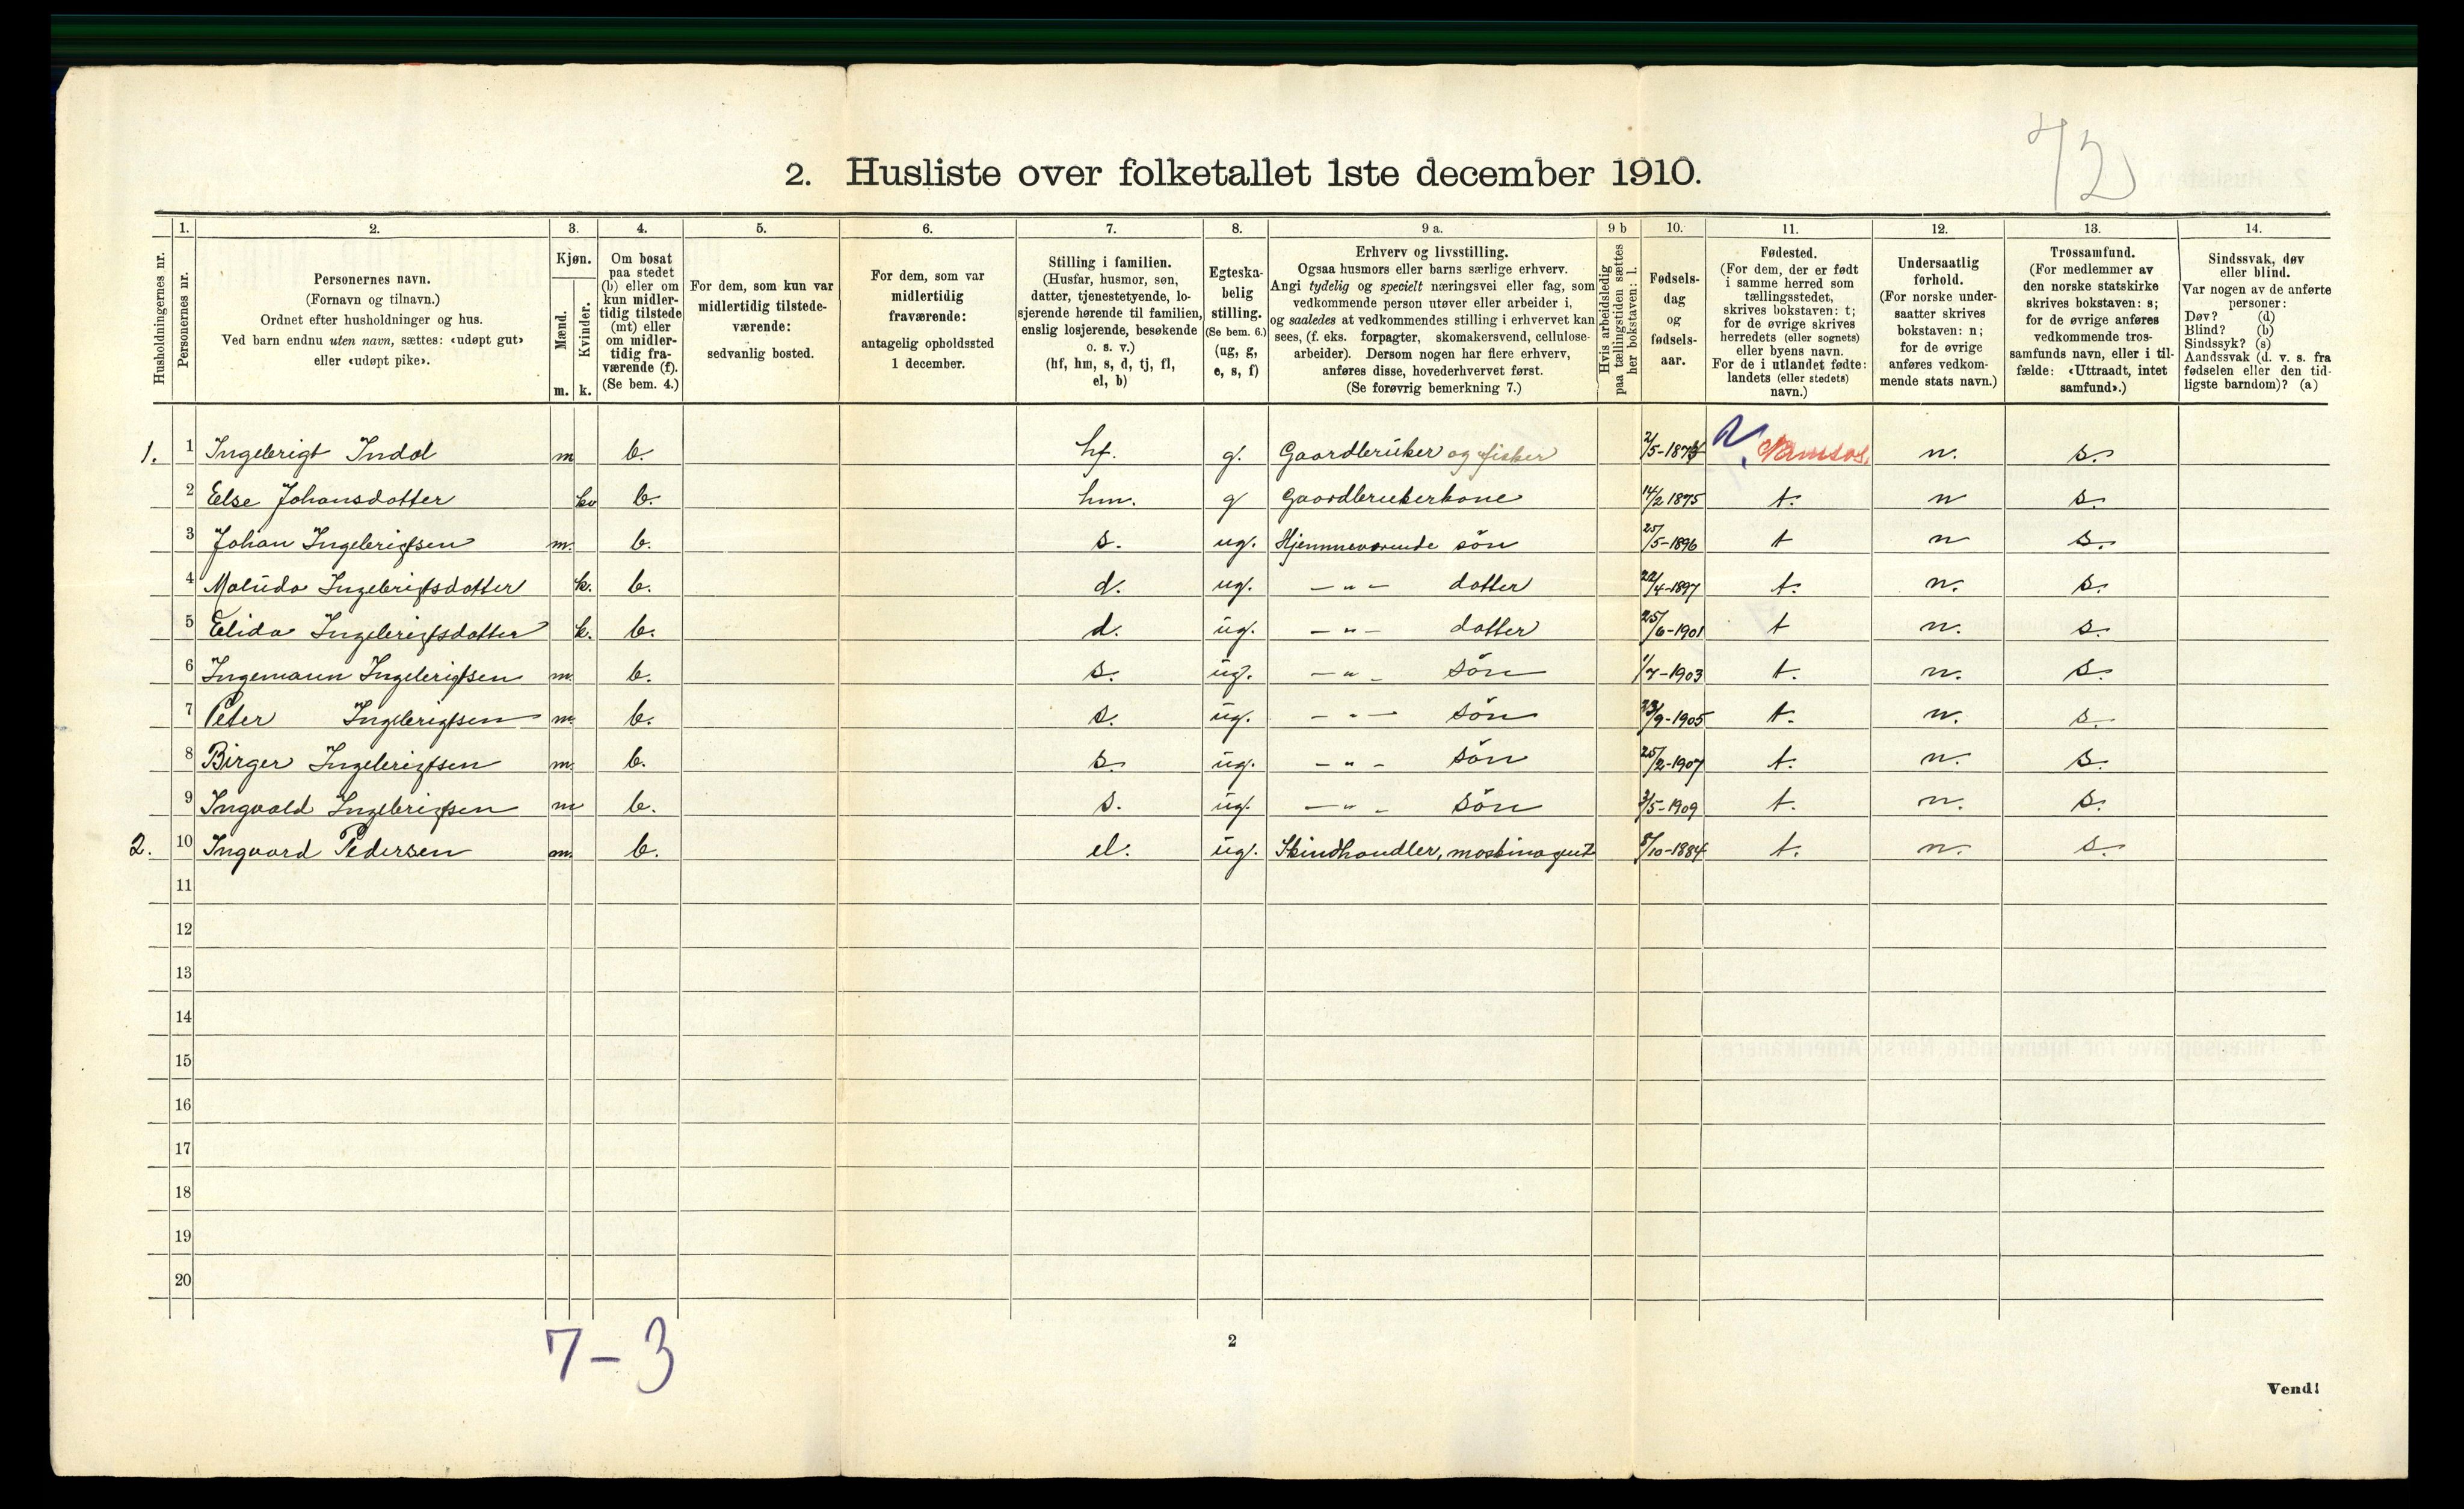 72
2. Husliste over folketallet 1ste december 1910.
Husholdningernes nr.
1. Personernes nr.
2. Personernes navn.
(Fornavn og tilnavn.)
Ordnet efter husholdninger og hus.
Ved barn endnu uten navn, sættes: «udøpt gut»
eller «udøpt pike».
3. Kjøn.
Mænd. m.
Kvinder. k.
4. Om bosat
paa stedet
(b) eller om
kun midler-
tidig tilstede
(mt) eller
om midler-
tidig fra-
værende (f).
(Se bem. 4.)
5. For dem, som kun var
midlertidig tilstede-
værende:
sedvanlig bosted.
6. For dem, som var
midlertidig
fraværende:
antagelig opholdssted
1 december.
7. Stilling i familien.
(Husfar, husmor, søn,
datter, tjenestetyende, lo-
sjerende hørende til familien,
enslig losjerende, besøkende
o. s. v.)
(hf, hm, s, d, tj, fl,
el, b)
8. Egteska-
belig
stilling.
(Se bem. 6.)
(ug, g,
e, s, f)
9 a. Erhverv og livsstilling.
Ogsaa husmors eller barns særlige erhverv.
Angi tydelig og specielt næringsvei eller fag, som
vedkommende person utøver eller arbeider i,
og saaledes at vedkommendes stilling i erhvervet kan
sees, (f. eks. forpagter, skomakersvend, cellulose-
arbeider). Dersom nogen har flere erhverv,
anføres disse, hovederhvervet først.
(Se forøvrig bemerkning 7.)
9 b Hvis arbeidsledig
paa tællingstiden sættes
her bokstaven: l.
10. Fødsels-
dag
og
fødsels-
aar.
11. Fødested.
(For dem, der er født
i samme herred som
tællingsstedet,
skrives bokstaven: t;
for de øvrige skrives
herredets (eller sognets)
eller byens navn.
For de i utlandet fødte:
landets (eller stedets)
navn.)
12. Undersaatlig
forhold.
(For norske under-
saatter skrives
bokstaven: n;
for de øvrige
anføres vedkom-
mende stats navn.)
13. Trossamfund.
(For medlemmer av
den norske statskirke
skrives bokstaven: s;
for de øvrige anføres
vedkommende tros-
samfunds navn, eller i til-
fælde: «Uttraadt, intet
samfund».)
14. Sindssvak, døv
eller blind.
Var nogen av de anførte
personer:
Døv? (d)
Blind? (b)
Sindssyk? (s)
Aandssvak (d. v. s. fra
fødselen eller den tid-
ligste barndom)? (a)
1. 1 Ingebrigt Indal m b. hf. g. Gaardbruker og fisker 2/5-1873 N. Namsos. n. s.
2 Else Johansdatter kv b. hm. g Gaardbrukerkone 14/2 1875 t. n s.
3 Johan Ingebrigtsen m. b. s. ug. Hjemmeværende søn 25/5-1896 t n s.
4 Malida Ingebrigtsdatter k. b. d. ug. — „ — datter 22/4-1897 t. n. s.
5 Elida Ingebrigtsdatter k. b. d. ug. — „ — datter 25/6-1901 t n. s.
6 Ingemann Ingebrigtsen m. b. s. ug. — „ — søn 1/7-1903 t. n. s.
7 Peter Ingebrigtsen m. b. s. ug. — „ — søn 23/9-1905 t. n. s.
8 Birger Ingebrigtsen m. b. s. ug. — „ — søn 25/2-1907 t. n. s.
9 Ingvald Ingebrigtsen m b. s. ug. — „ — søn 3/5-1909 t. n. s.
2. 10 Ingvard Pedersen m. b. el. ug. Skindhandler, maskinagent 8/10-1884 t. n. s.
11
12
13
14
15
16
17
18
19
20
7-3
2
Vend!